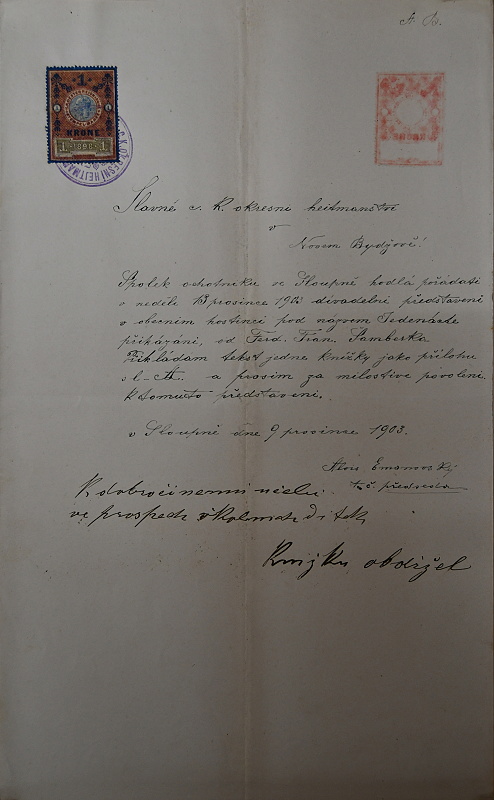 A. B.
1
KRONE
1 1898 1
Slavné c. k. okresni heitmanstvi
v
Novem Bydžově!
Spolek ochotniku ve Sloupně hodlá pořádati
v neděle 13 prosince 1903 divadelni představeni
v obecnim hostinci pod názvem Jedenácte
přikázáni, od Ferd. Fran. Šamberka
Přikládám tekst jedne knižky jako přilohu
sl-A. - a prosim za milostive povoleni
k tomuto představeni.
v Sloupně dne 9 prosince 1903.
Alois
t. č. předseda
K dobročinemu učelu
ve prospech školnich ditek
Knijžku obdržel